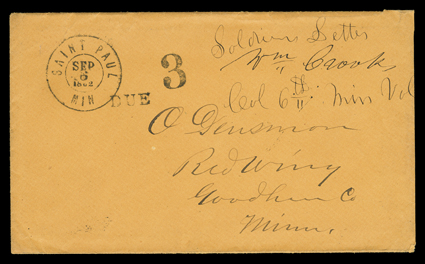 SAINT PAUL
SEP
6
1862
MIN
DUE 3
Soldiers Letter
Wm Crook
Col 6th Minn Vol
O Densmore
Red Wing
Goodhue Co
Minn.